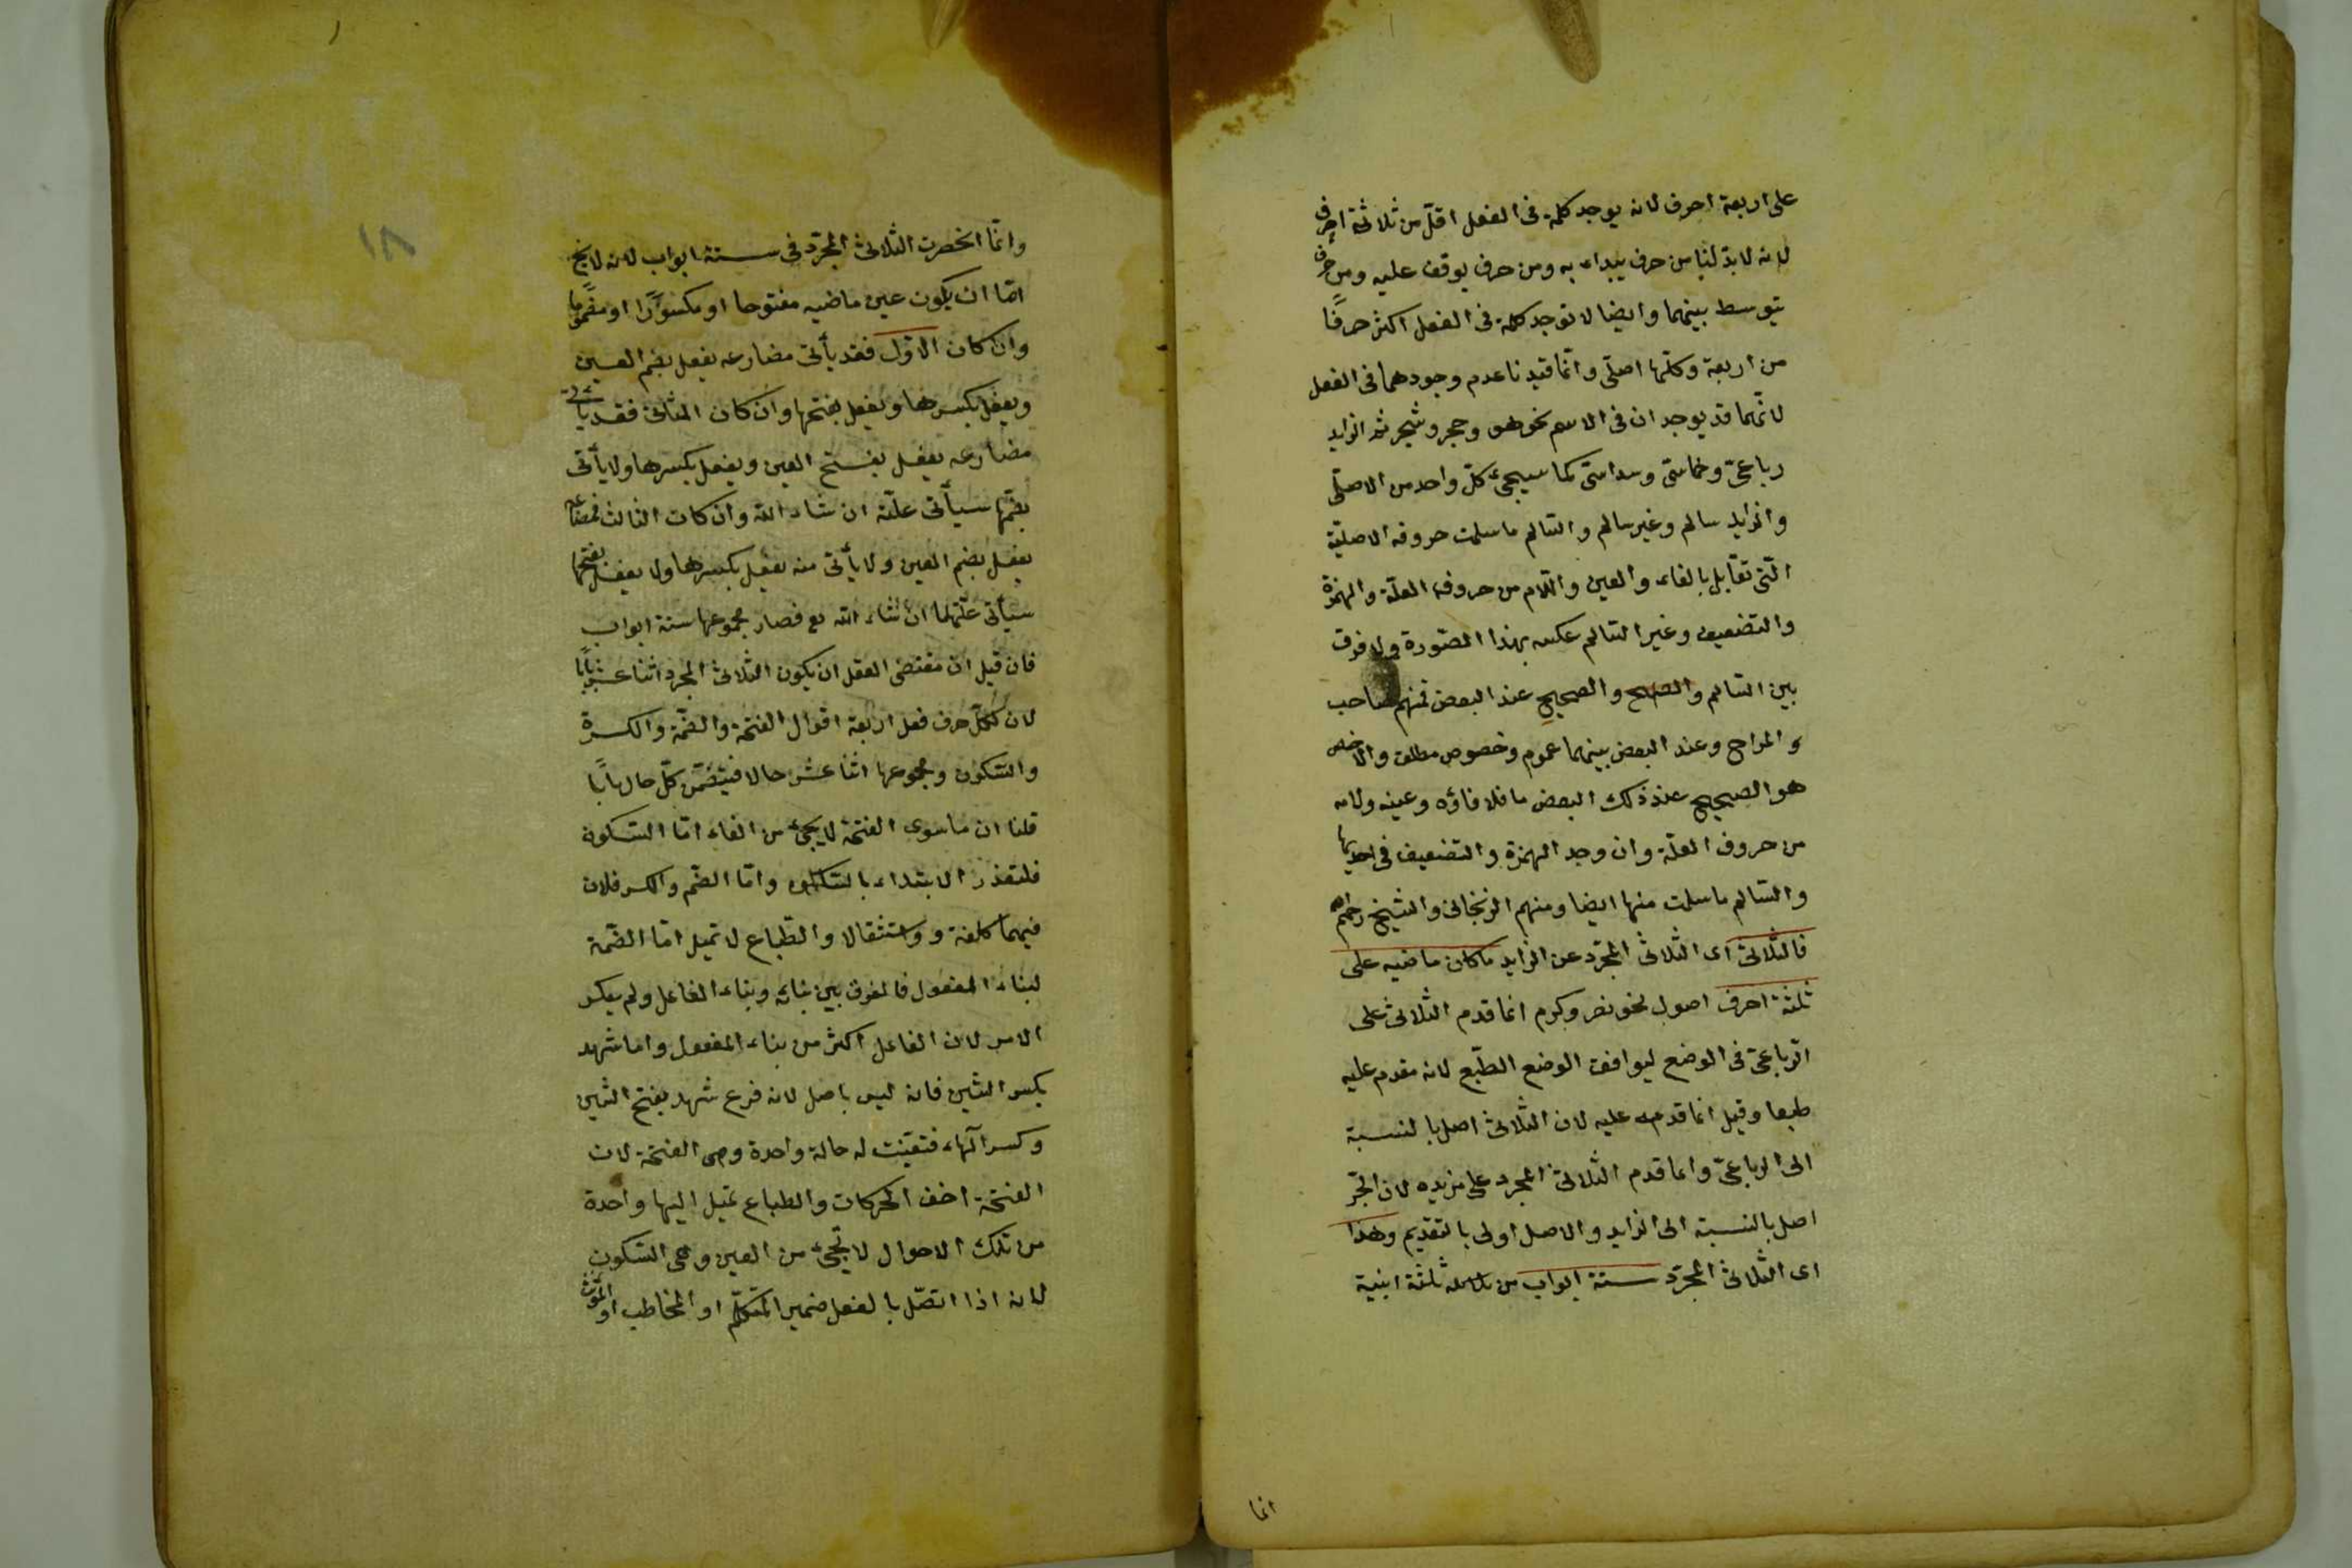 على اربعة احرف لانه يوجد كلمة فى الفعل اقلّ من ثلاثة احرف
لانه لابدّ لنا من حرف يبداء به ومن حرف يوقف عليه ومن حرف
يتوسط بينهما وايضا لا توجد كلمة فى الفعل اكثر حرفًا
من اربعة وكلّها اصلّى وانّما قيدنا عدم وجودهما فى الفعل
لانّهما قد يوجد ان فى الاسم نحو هو وحجر وشجر ثم الزايد
رباعىّ وخماسّى وسداسّى كما سيجىء كلّ واحد من الاصلّى
والزايد سالم وغير سالم والسّالم ما سلمت حروفه الاصليّة
الّتى تقابل بالفاء والعين واللّام من حروف العلّة والهمزة
والتضعيف وغير السّالم عكسه بهذا الصّورة ولا فرق
بين السّالم والصحيح عند البعض فمنهم صاحب
و المراح وعند البعض بينهما عموم وخصوص مطلق والاخص
هو الصحيح عند ذلك البعض ما فلا فاؤه وعينه ولامه
من حروف العلّة وان وجد الهمزة والتضعيف فى احديها
والسّالم ما سلمت منها ايضا ومنهم الزنجانى والشيخ رحمهم
فالثلاثى اى الثلاثى المجرّد عن الزايد ما كان ماضيه على
ثلثة احرف اصول نحو نصر وكرم انما قدم الثلاثى على
الرّباعىّ فى الوضع ليوافق الوضع الطّبع لانه مقدم عليه
طبعا وقيل انما قدمه عليه لان الثلاثى اصل بالنسبة
الى الرباعىّ وانما قدم الثلاثى المجرد على مزيده لان المجرّ
اصل بالنسبة الى الزايد والاصل اولى بالتقديم وهذا
اى الثلاثى المجرّد ستة ابواب من ثلثة ابنية
انما
١٨
وانّما انحصرت الثلاثى المجرّد فى ستة ابواب لانه لا يخ
امّا ان يكون عين ماضيه مفتوحا او مكسورًا او مضمومًا
وان كان الاوّل فقد يأتى مضارعه يفعل بضم العين
ويفعل بكسرها ويفعل بفتحها وان كان الثانى فقد يأتى
مضارعه يفعل بفتح العين ويفعل بكسرها ولا يأتى
بضمّها سيأتى علّته ان شاء الله وان كان الثالث فمضارعه
يفعل بضم العين ولا يأتى منه يفعل بكسرها ولا يفعل بفتحها
سيأتى علّتهما ان شاء الله تع فصار مجموعها ستة ابواب
فان قيل ان مقتضى العقل ان يكون الثلاثى المجرد اثنا عشر بابًا
لان لكلّ حرف فعل اربعة اقوال الفتحة والضمّة والكسرة
والسّكون ومجموعها اثنا عشر حالا فيتضمّن كلّ حال بابًا
قلنا ان ما سوى الفتحة لا يجىء من الفاء امّا السّكون
فلتعذر الابتداء بالسّاكن وامّا الضّم والكسر فلان
فيهما كلفة و واستثقالا والطّباع لا تميل امّا الضّمة
لبناء المفعول فالفرق بين بنائه وبناء الفاعل ولم يعكس
الامر لان الفاعل اكثر من بناء المفعول واما شهد
بكسر الشين فانه ليس باصل لانه فرع شهد بفتح الشين
وكسر الهاء فتعيّنت له حالة واحدة وهى الفتحة لان
الفتحة اخف الحركات والطباع تميل اليها واحدة
من تلك الاحوال لا تجىء من العين وهى السّكون
لانه اذا اتصّل بالفعل ضمير المتكلّم او المخاطب او المؤنث